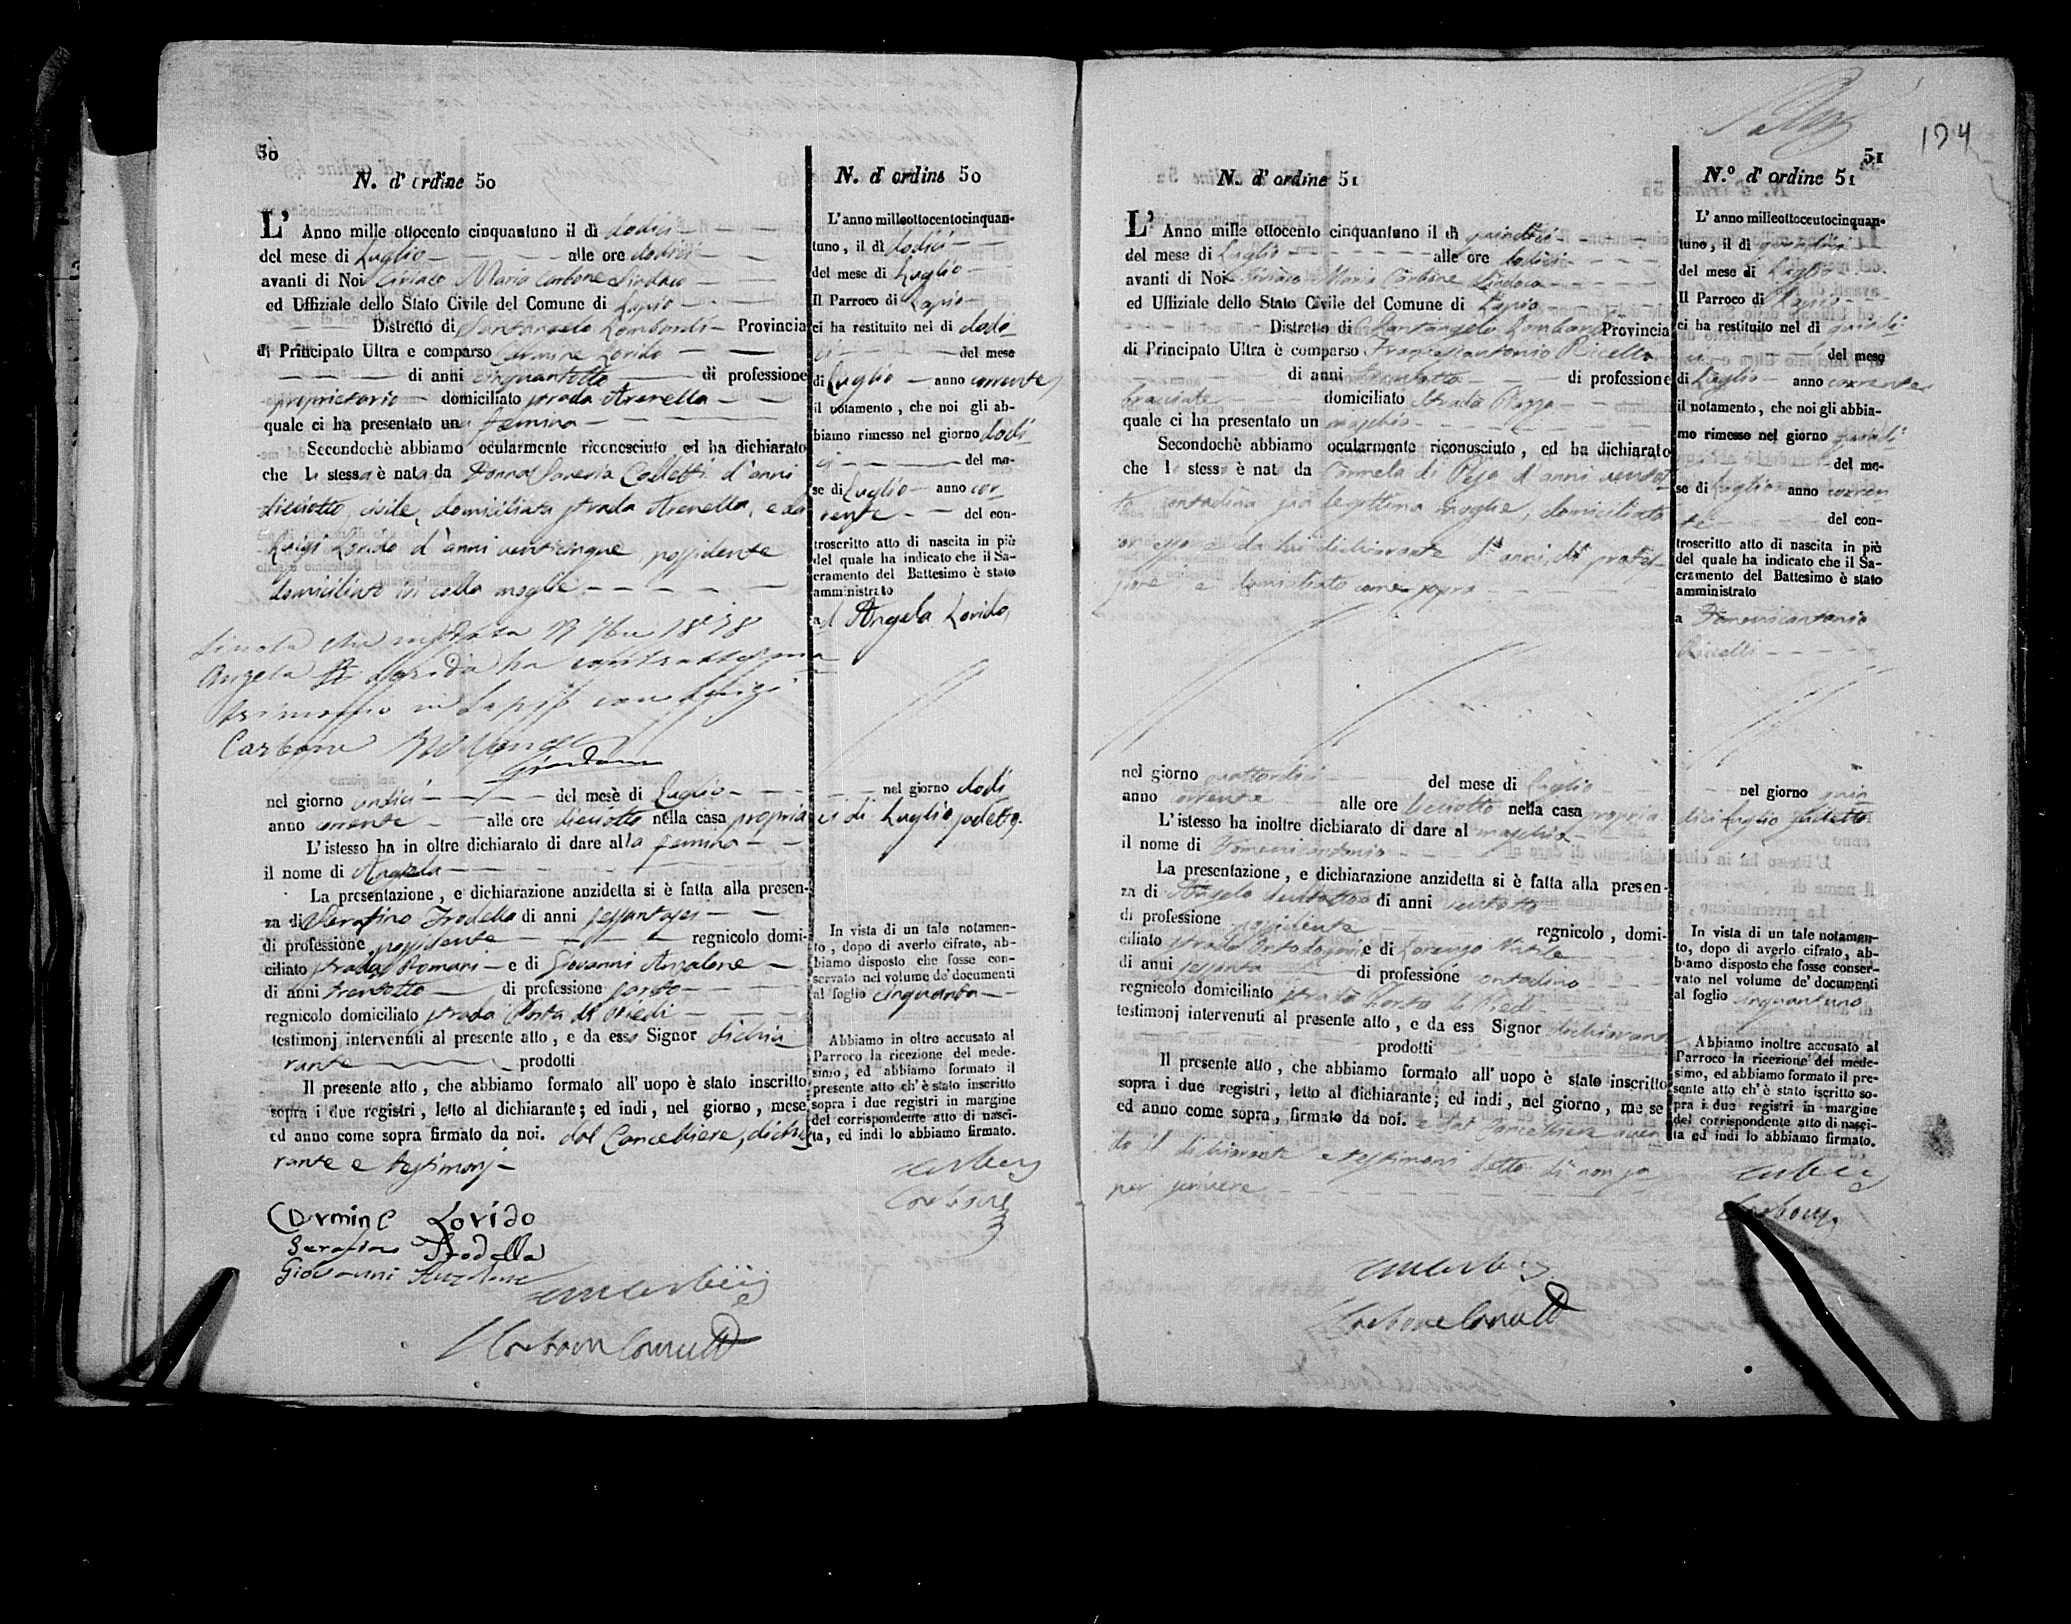 50
N. d'ordine 50
L' Anno mille ottocento cinquantuno il dì dodici
del mese di Luglio alle ore dodici
avanti di Noi Ciriaco Maria Carbone Sindaco
ed Uffiziale dello Stato Civile del Comune di Lapio
Distretto di Santangelo Lombardi Provincia
di Principato Ultra e comparso Carmine Lorido
di anni cinquantotto di professione
proprietario domiciliato strada Arenella
quale ci ha presentato una femina
Secondochè abbiamo ocularmente riconosciuto ed ha dichiarato
che la stessa è nata da Donna Saveria d'anni
diciotto, civile, domiciliata strada Arenella, e da
Luigi Lorido d'anni venticinque possidente
domiciliato ivi colla moglie
Angela ha
in Lapio con Luigi
Carbone
nel giorno undici del mese di Luglio
anno corrente alle ore diciotto nella casa propria
L'istesso ha in oltre dichiarato di dare alla femina
il nome di Angela
La presentazione, e dichiarazione anzidetta si è fatta alla presen-
za di Serafino Trodella di anni sessantasei
di professione possidente regnicolo domi-
ciliato strada Romani e di Giovanni Anzalone
di anni trentotto di professione sarto
regnicolo domiciliato strada Porta di Piedi
testimonj intervenuti al presente atto, e da esso Signor dichia
rante prodotti
Il presente atto, che abbiamo formato all' uopo è stato inscritto
sopra i due registri, letto al dichiarante; ed indi, nel giorno, mese
ed anno come sopra firmato da noi. dal Cancelliere, dichia
rante e testimonj
Carmine Lorido
Serafino Trodella
Giovanni Anzalone
N. d' ordine 50
L'anno milleottocentocinquan-
tuno, il dì dodici
del mese di Luglio
Il Parroco di Lapio
ci ha restituito nel dì dodi
ci del mese
di Luglio anno corrente
il notamento, che noi gli ab-
biamo rimesso nel giorno dodi
ci del me-
se di Luglio anno cor
rente del con-
troscritto atto di nascita in piè
del quale ha indicato che il Sa-
cramento del Battesimo è stato
amministrato
ad Angela Lorido
nel giorno dodi
ci di Luglio sudetto
In vista di un tale notamen-
to, dopo di averlo cifrato, ab-
biamo disposto che fosse con-
servato nel volume de' documenti
al foglio cinquanta
Abbiamo in oltre accusato al
Parroco la ricezione del mede-
simo, ed abbiamo formato il
presente atto ch' è stato inscritto
sopra i due registri in margine
del corrispondente atto di nasci-
ta, ed indi lo abbiamo firmato.
Carbone
194
51
N. d' ordine 51
L' Anno mille ottocento cinquantuno il dì quindici
del mese di Luglio alle ore dodici
avanti di Noi Ciriaco Maria Carbone Sindaco
ed Uffiziale dello Stato Civile del Comune di Lapio
Distretto di Santangelo Lombardi Provincia
di Principato Ultra è comparso Francescantonio Ricello
di anni trentotto di professione
bracciale domiciliato strada Piazza
quale ci ha presentato un maschio
Secondochè abbiamo ocularmente riconosciuto, ed ha dichiarato
che l stess è nat da Carmela di anni ventot
to contadina sua legittima moglie, domiciliata
con esso e da lui dichiarante d' anni, di profes
sione e domiciliato come sopra
nel giorno quattordici del mese di Luglio
anno corrente alle ore diciotto nella casa propria
L' istesso ha inoltre dichiarato di dare al maschio
il nome di Domenicantonio
La presentazione, e dichiarazione anzidetta si è fatta alla presen-
za di Angelo di anni ventotto
di professione possidente regnicolo, domi-
ciliato strada e di Lorenzo
di anni sessanta di professione contadino
regnicolo domiciliato strada Porta di Piedi
testimonj intervenuti al presente atto, e da ess Signor dichiarante
prodotti
Il presente atto, che abbiamo formato all' uopo è stato inscritto
sopra i due registri, letto al dichiarante; ed indi, nel giorno, mese
ed anno come sopra, firmato da noi. e dal Cancelliere aven
do il dichiarante e testimoni detto di non sa
per scrivere
N.º d' ordine 51
L' anno milleottocentocinquan-
tuno, il dì quindici
del mese di Luglio
Il Parroco di Lapio
ci ha restituito nel dì quindi
ci del mese
di Luglio anno corrente
il notamento, che noi gli abbia-
mo rimesso nel giorno quindi
del me-
se di Luglio anno corren
te del con-
troscritto atto di nascita in piè
del quale ha indicato che il Sa-
cramento del Battesimo è stato
amministrato
a Domenicantonio
Ricelli
nel giorno quin
dici Luglio sudetto
In vista di un tale notamen-
to, dopo di averlo cifrato, ab-
biamo disposto che fosse conser-
vato nel volume de' documenti
al foglio cinquantuno
Abbiamo inoltre accusato al
Parroco la ricezione del mede-
simo, ed abbiamo formato il pre-
sente atto ch' è stato iscritto so-
pra i due registri in margine
del corrispondente atto di nasci-
ta ed indi lo abbiamo firmato.
Carbone